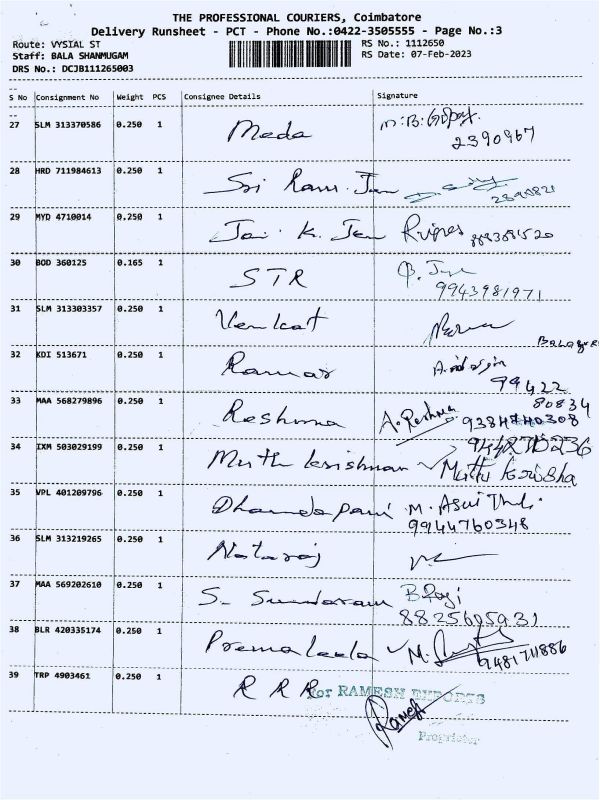 THE PROFESSIONAL COURIERS, Coimbatore
Delivery Runsheet - PCT - Phone No.:0422-3505555 - Page No.:3
Route: VYSIAL ST
Staff: BALA SHANMUGAM
DRS No.: DCJB111265003
RS No.: 1112650
RS Date: 07-Feb-2023
S No Consignment No Weight PCS Consignee Details Signature
27 SLM 313370586 0.250 1 Meda
2390967
28 HRD 711984613 0.250 1 Sri Ram. Jan
2390821
29 MYD 4710014 0.250 1 Jai. K. Jen
30 BOD 360125 0.165 1 STR
9943981971
31 SLM 313303357 0.250 1 Venkat
32 KDI 513671 0.250 1 Raman
99422
80834
33 MAA 568279896 0.250 1 Reshma A. Reshma
34 IXM 503029199 0.250 1 Muthu krishnan
35 VPL 401209796 0.250 1 Dhandapani
9944760348
36 SLM 313219265 0.250 1 Nataraj
37 MAA 569202610 0.250 1 S. Sundaram
8825605931
38 BLR 420335174 0.250 1 Premaleela
9481711886
39 TRP 4903461 0.250 1 R R R
For RAMESH EXPORTS
Ramesh
Proprietor